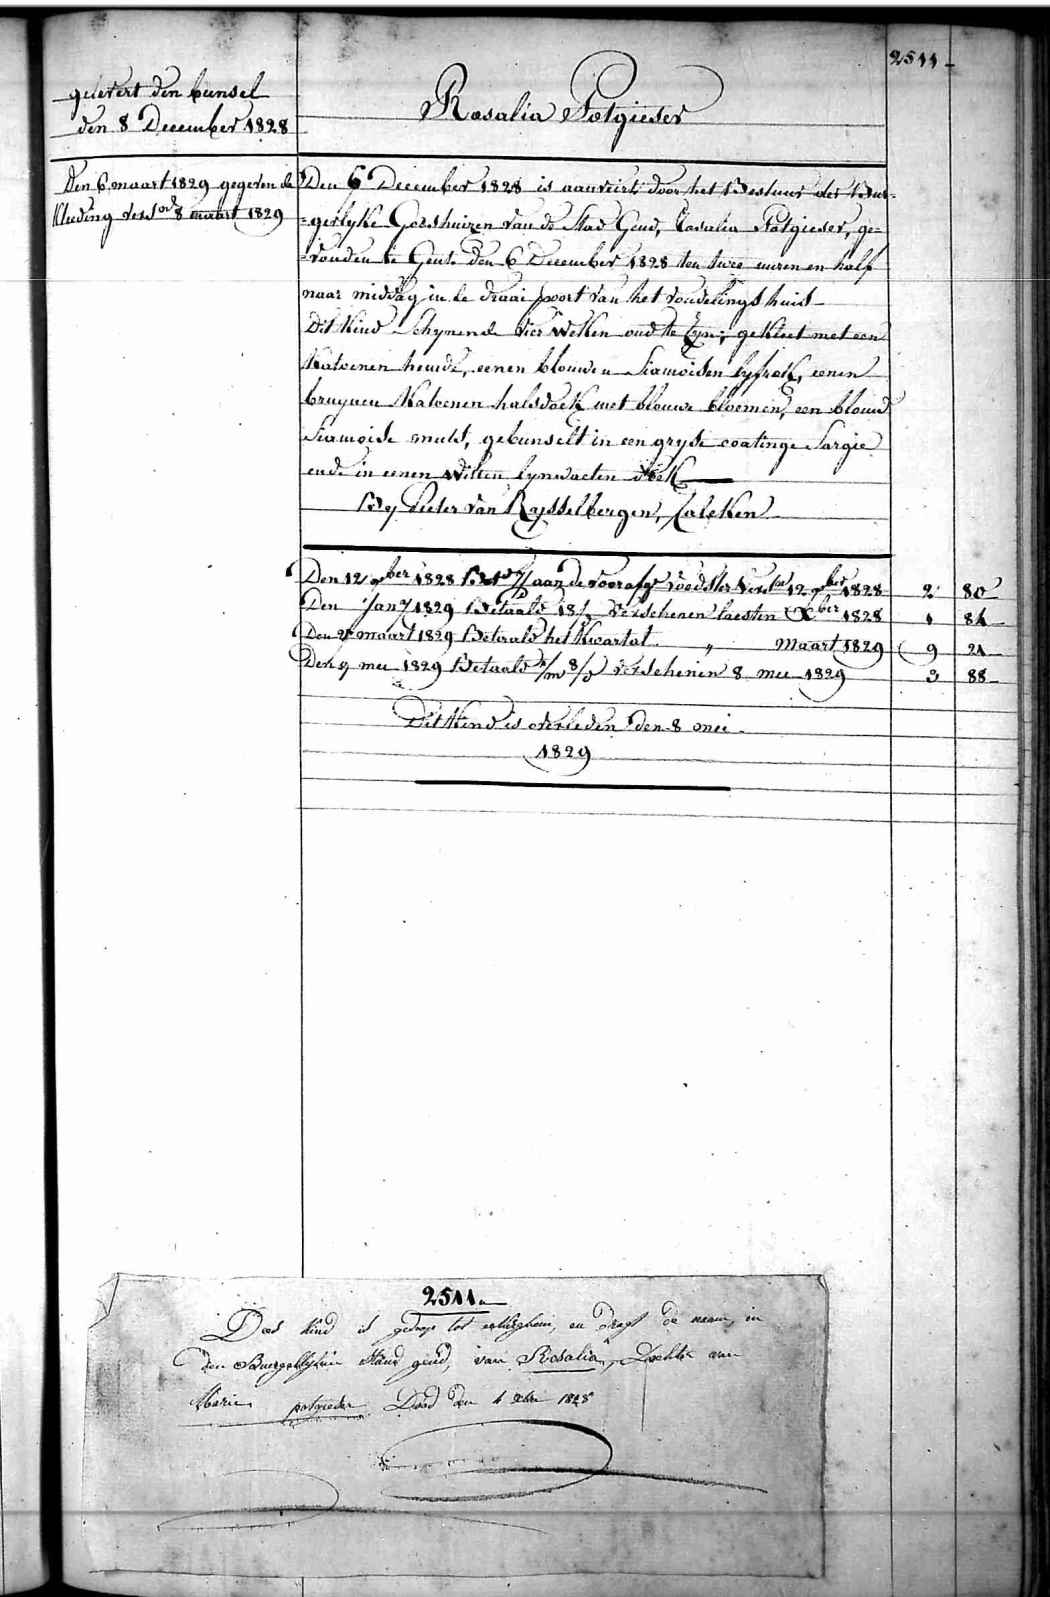 2511
gelevert den bunsel
den 8 December 1828
Rosalia Potgieser
Den 6 maart 1829 gegeven de
kleeding 8 maart 1829
Den 6 December 1828 is aanveirt door het Bestuur der Bur-
=gerlyke Godshuizen van de Stad Gend, Rosalia Potgieser, ge=
=vonden te Gent den 6 December 1828 ten twee uuren en half
naar middag in de draai poort van het vondelings huis
Dit Kind Schynende vier weken oud te zyn, gekleet met een
Katoenen hemde, eenen blouwen Siamoisen lyfrok, eenen
bruynen Katoenen halsdoek met blouwe bloemen, een blouw
Siamoise muts, gebunselt in een gryse coatinge Sargie
ende in eenen Witten lynwaeten doek
By Pieter van Rysselbergen, Calcken
Den 12 ber 1828 aan de voedster 12 ber 1828 2 80
Den Jany 1829 Betaald 18/ verschenen laesten Xber 1828 1 84
Den maart 1829 Betaald het Kwartal " maart 1829 9 21
Den 9 mei 1829 Betaald 2/m 8/d verschenen 8 mei 1829 3 88
Dit Kind is overleden den 8 mei
1829
2511
Dat kind is gedoopt tot, en dragt de naam, in
den Burgerlyken Stand gend, van Rosalia, Dochter van
Marie potgieder Dood den 4 1828